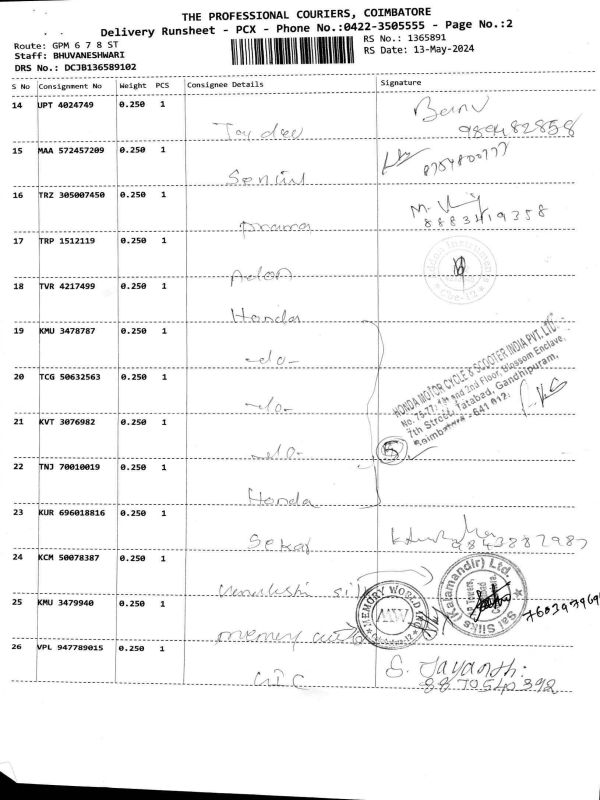 THE PROFESSIONAL COURIERS, COIMBATORE
Delivery Runsheet - PCX - Phone No.:0422-3505555 - Page No.:2
Route: GPM 6 7 8 ST
RS No.: 1365891
Staff: BHUVANESHWARI
RS Date: 13-May-2024
DRS No.: DCJB136589102
S No Consignment No Weight PCS Consignee Details Signature
14 UPT 4024749 0.250 1
Banu
15 MAA 572457209 0.250 1
8754800777
16 TRZ 305007450 0.250 1
8883419358
17 TRP 1512119 0.250 1
Adon
18 TVR 4217499 0.250 1
Honda
19 KMU 3478787 0.250 1
-do-
HONDA MOTOR CYCLE & SCOOTER INDIA PVT. LTD.
No. 75-77, 1st and 2nd Floor, Blossom Enclave,
7th Street, Tatabad, Gandhipuram,
Coimbatore - 641 012.
20 TCG 50632563 0.250 1
-do-
21 KVT 3076982 0.250 1
-do-
5
22 TNJ 70010019 0.250 1
Honda
23 KUR 696018816 0.250 1
Sekar
9843882987
24 KCM 50078387 0.250 1
silk
Sai Silks (Kalamandir) Ltd.
25 KMU 3479940 0.250 1
memory
MEMORY WORLD INC
26 VPL 947789015 0.250 1
S. Jayanthi
8870540392